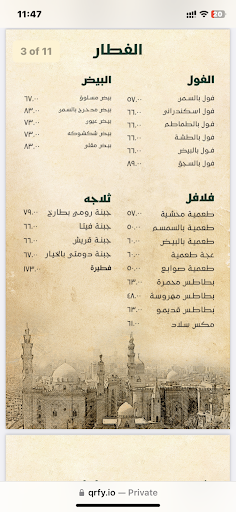 11:47
20
3 of 11
الفطار
الفول
فول بالسمر ٥٧.٠٠
فول اسكندراني ٦٦.٠٠
فول بالطماطم ٦٦.٠٠
فول بالطشة ٦٦.٠٠
فول بالبيض ٦٦.٠٠
فول بالسجق ٨٩.٠٠
البيض
بيض مسلوق ٦٧.٠٠
بيض مدحرج بالسمر ٨٣.٠٠
بيض عيون ٧٣.٠٠
بيض شكشوكة ٧٣.٠٠
بيض مقلي ٨٣.٠٠
فلافل
طعمية محشية ٥٧.٠٠
طعمية بالسمسم ٥٠.٠٠
طعمية بالبيض ٦٠.٠٠
عجة طعمية ٦٠.٠٠
طعمية صوابع ٥٠.٠٠
بطاطس محمرة ٦٣.٠٠
بطاطس مهروسة ٦٨.٠٠
بطاطس قديمو ٦٣.٠٠
مكس سلاد
ثلاجه
جبنة رومي بطارخ ٧٩.٠٠
جبنة فيتا ٦٦.٠٠
جبنة قريش ٦٦.٠٠
جبنة دومتي بالخيار ٦٧.٠٠
فطيرة ١٧٣.٠٠
qrfy.io — Private